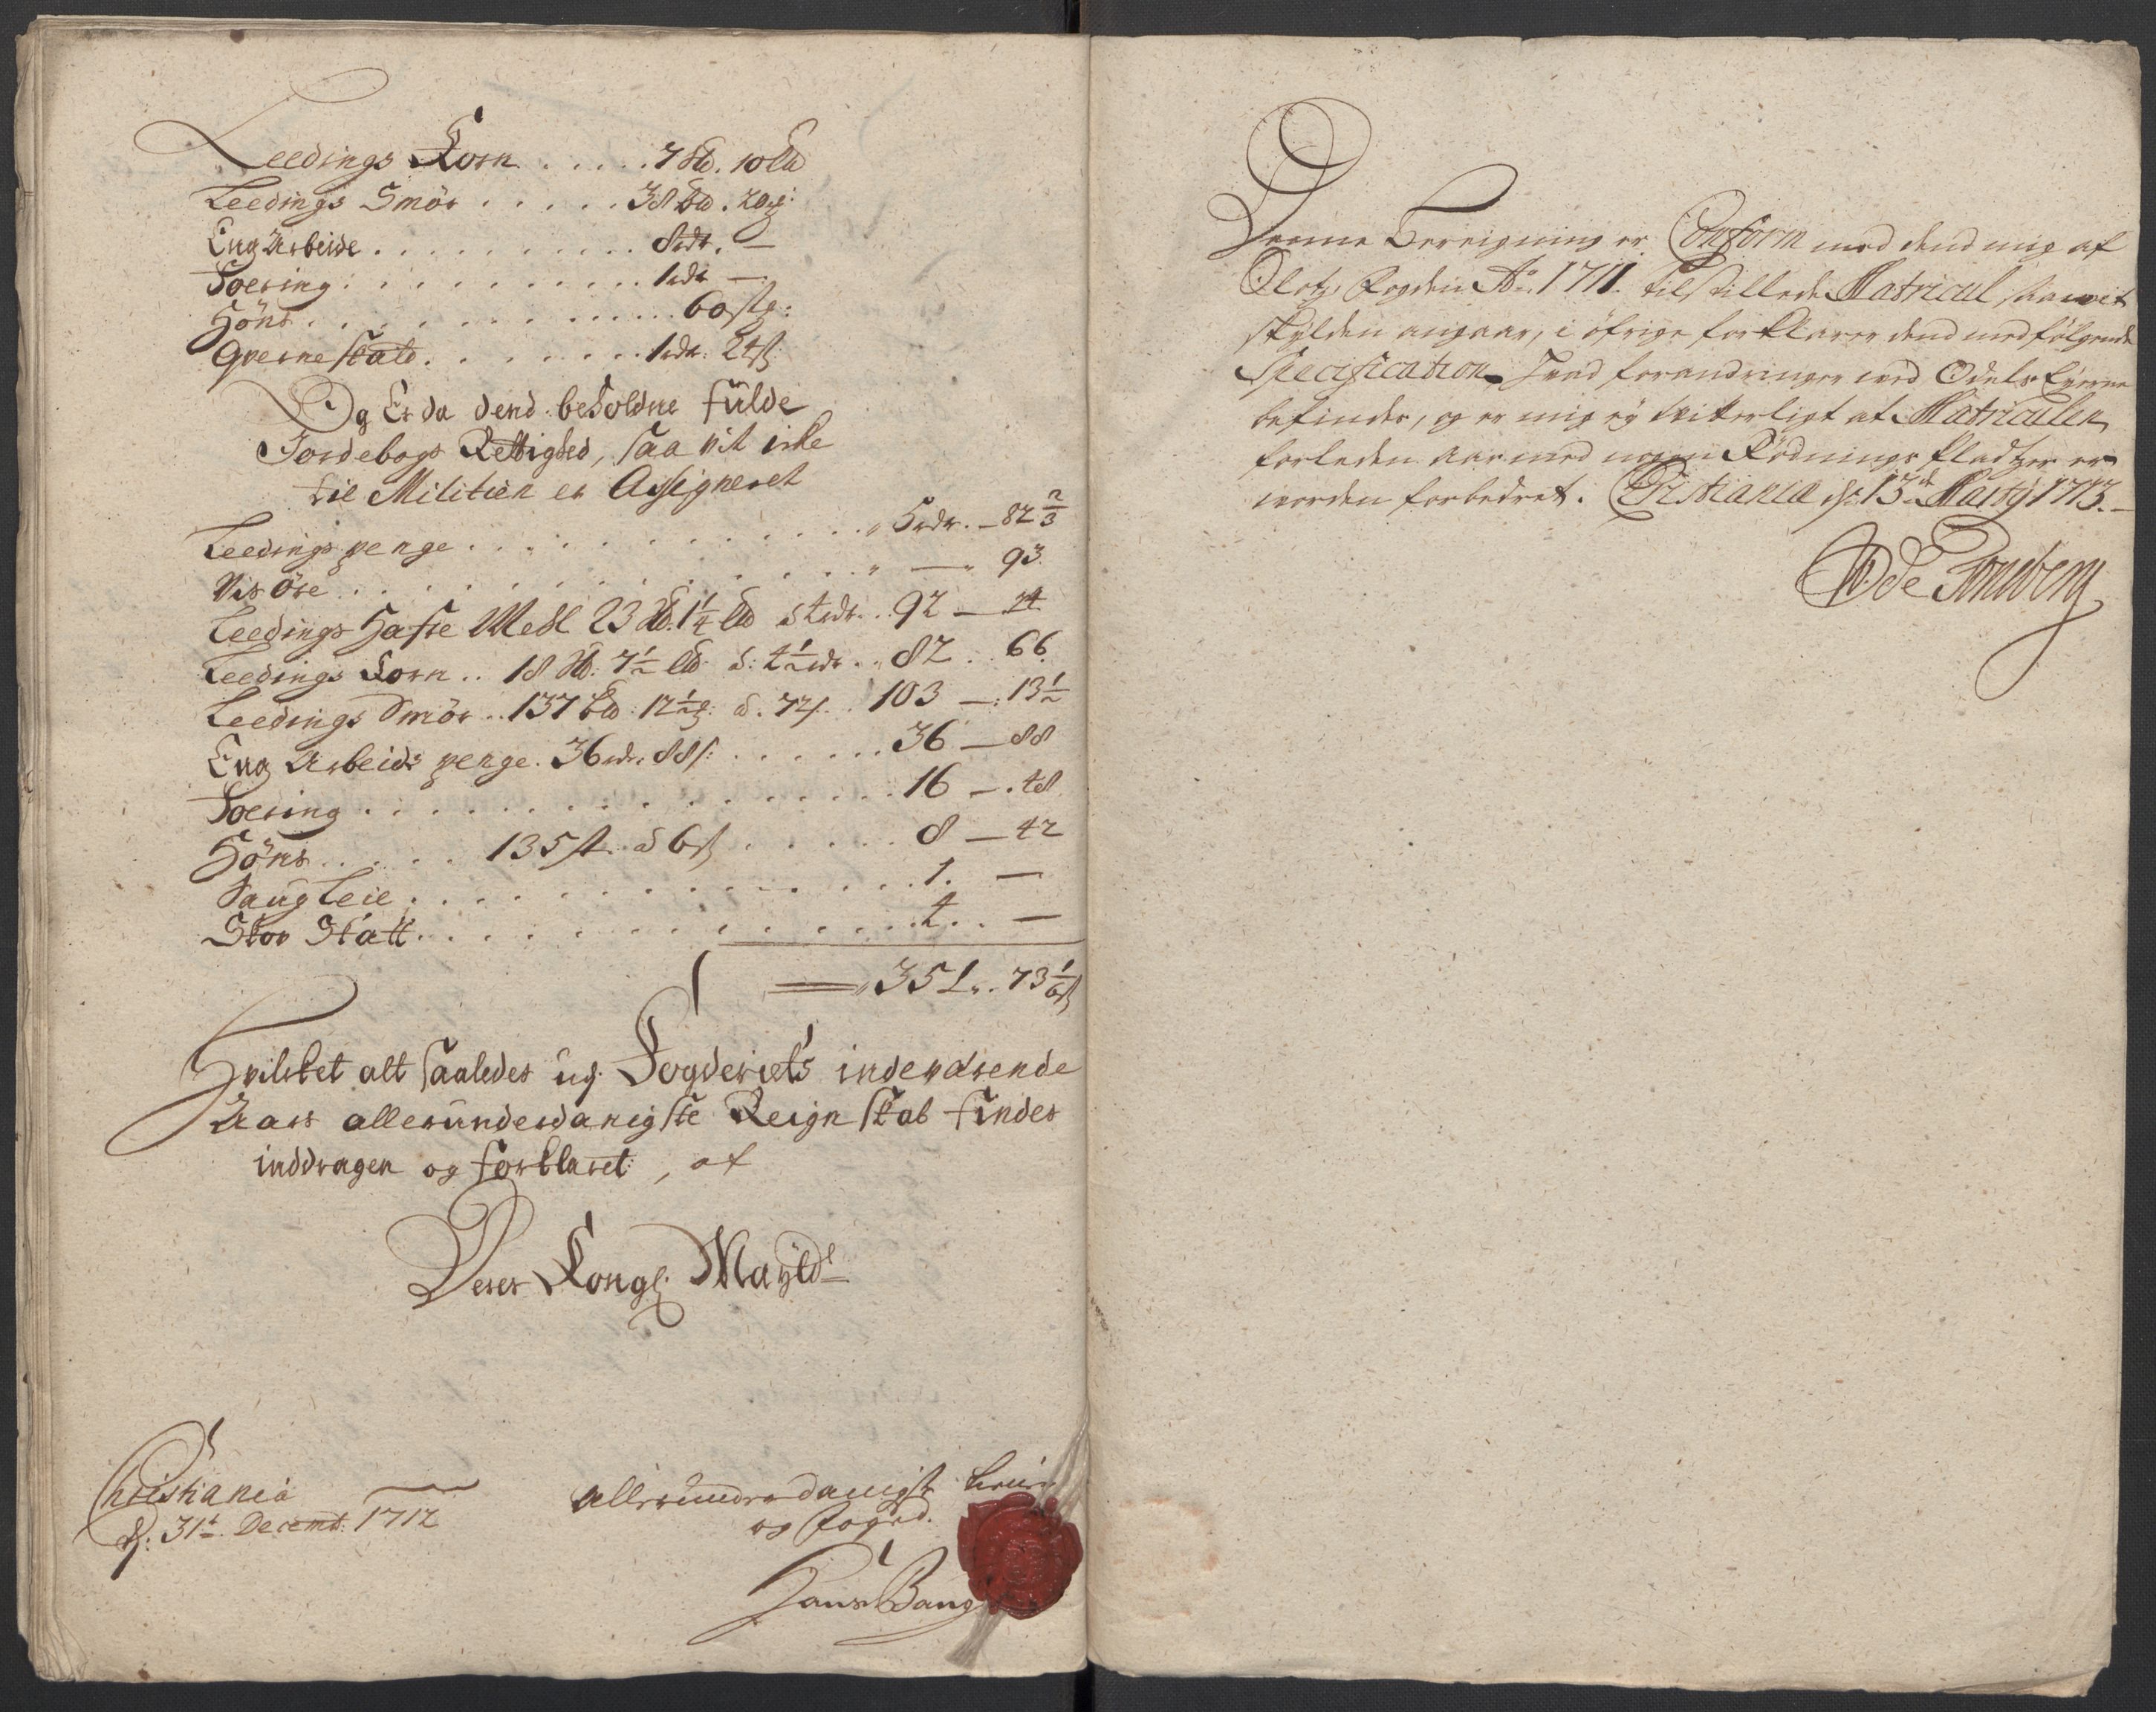 Leedings Korn . . . . . 7 Sk℔. 10 L℔
Leedings Smör . . . . . 38 B℔. 20 ㄓ:
Eng Arbeide . . . . . . . . . . 8 rdr. —
Foering . . . . . . . . . . . 1 rdr —
Höns . . . . . . . . . . . . . 60 stz:
Qverneskatt . . . . . . . 1 rdr. 24 ß
Og Er da dend beholdne fulde
Jordebogs Rettighed, saa vit icke
til Militien er Assigneret
Leedings penge . . . . . . . . . . . . . „ 5 rdr. — 82 2/3
Vis Öre . . . . . . . . . . . . . „ — „ 93
Leedings Hafre Mell 23 S℔. 1 1/4 L℔ à 4 rdr. . 92 — 24
Leedings Korn . . 18 S℔: 7 1/2 L℔ à: 4 1/2 rdr . . 82 . . 66
Leedings Smör . . 137 B℔: 12 1/2 ㄓ: à. 72 ß . . 103 — 13 1/2
Eng Arbeids penge. 36 rdr. 88 ß: . . . . . . 36 — 88
Foering . . . . . . . . . . . . . . . . 16 — . 48
Höns . . . . . 135 st. à 6 ß . . . . . . 8 — 42
Saugleie . . . . . . . . . . . . . . . . 1. —
Skov Skatt . . . . . . . . . . . . . . . 4 . . —
351 „. 73 1/6 ß
Hvilcket alt saaledes udj Fogderiets indeværende
Aars allerunderdanigste Reignskab findes
inddragen og forklaret, af
Deres Kongl. Mayldt
Christiania
d: 31t Decembr: 1712
allerunderdanigst
og Foged.
Hans Bang
Denne Bereigning er Conform med dend mig af
Slotz Fogden Ao 1711. tilstillede Matricul, saavit
skylden angaar, i öfrige forklarer dend medfölgende
Specification hvad forandringer ved Odels Eyerne
befindes, og er mig ey vitterligt at Matriculen
forleden aar med nogen Rödnings Pladtzer er
worden forbedret. Christiania d: 13de Marty 1713. —